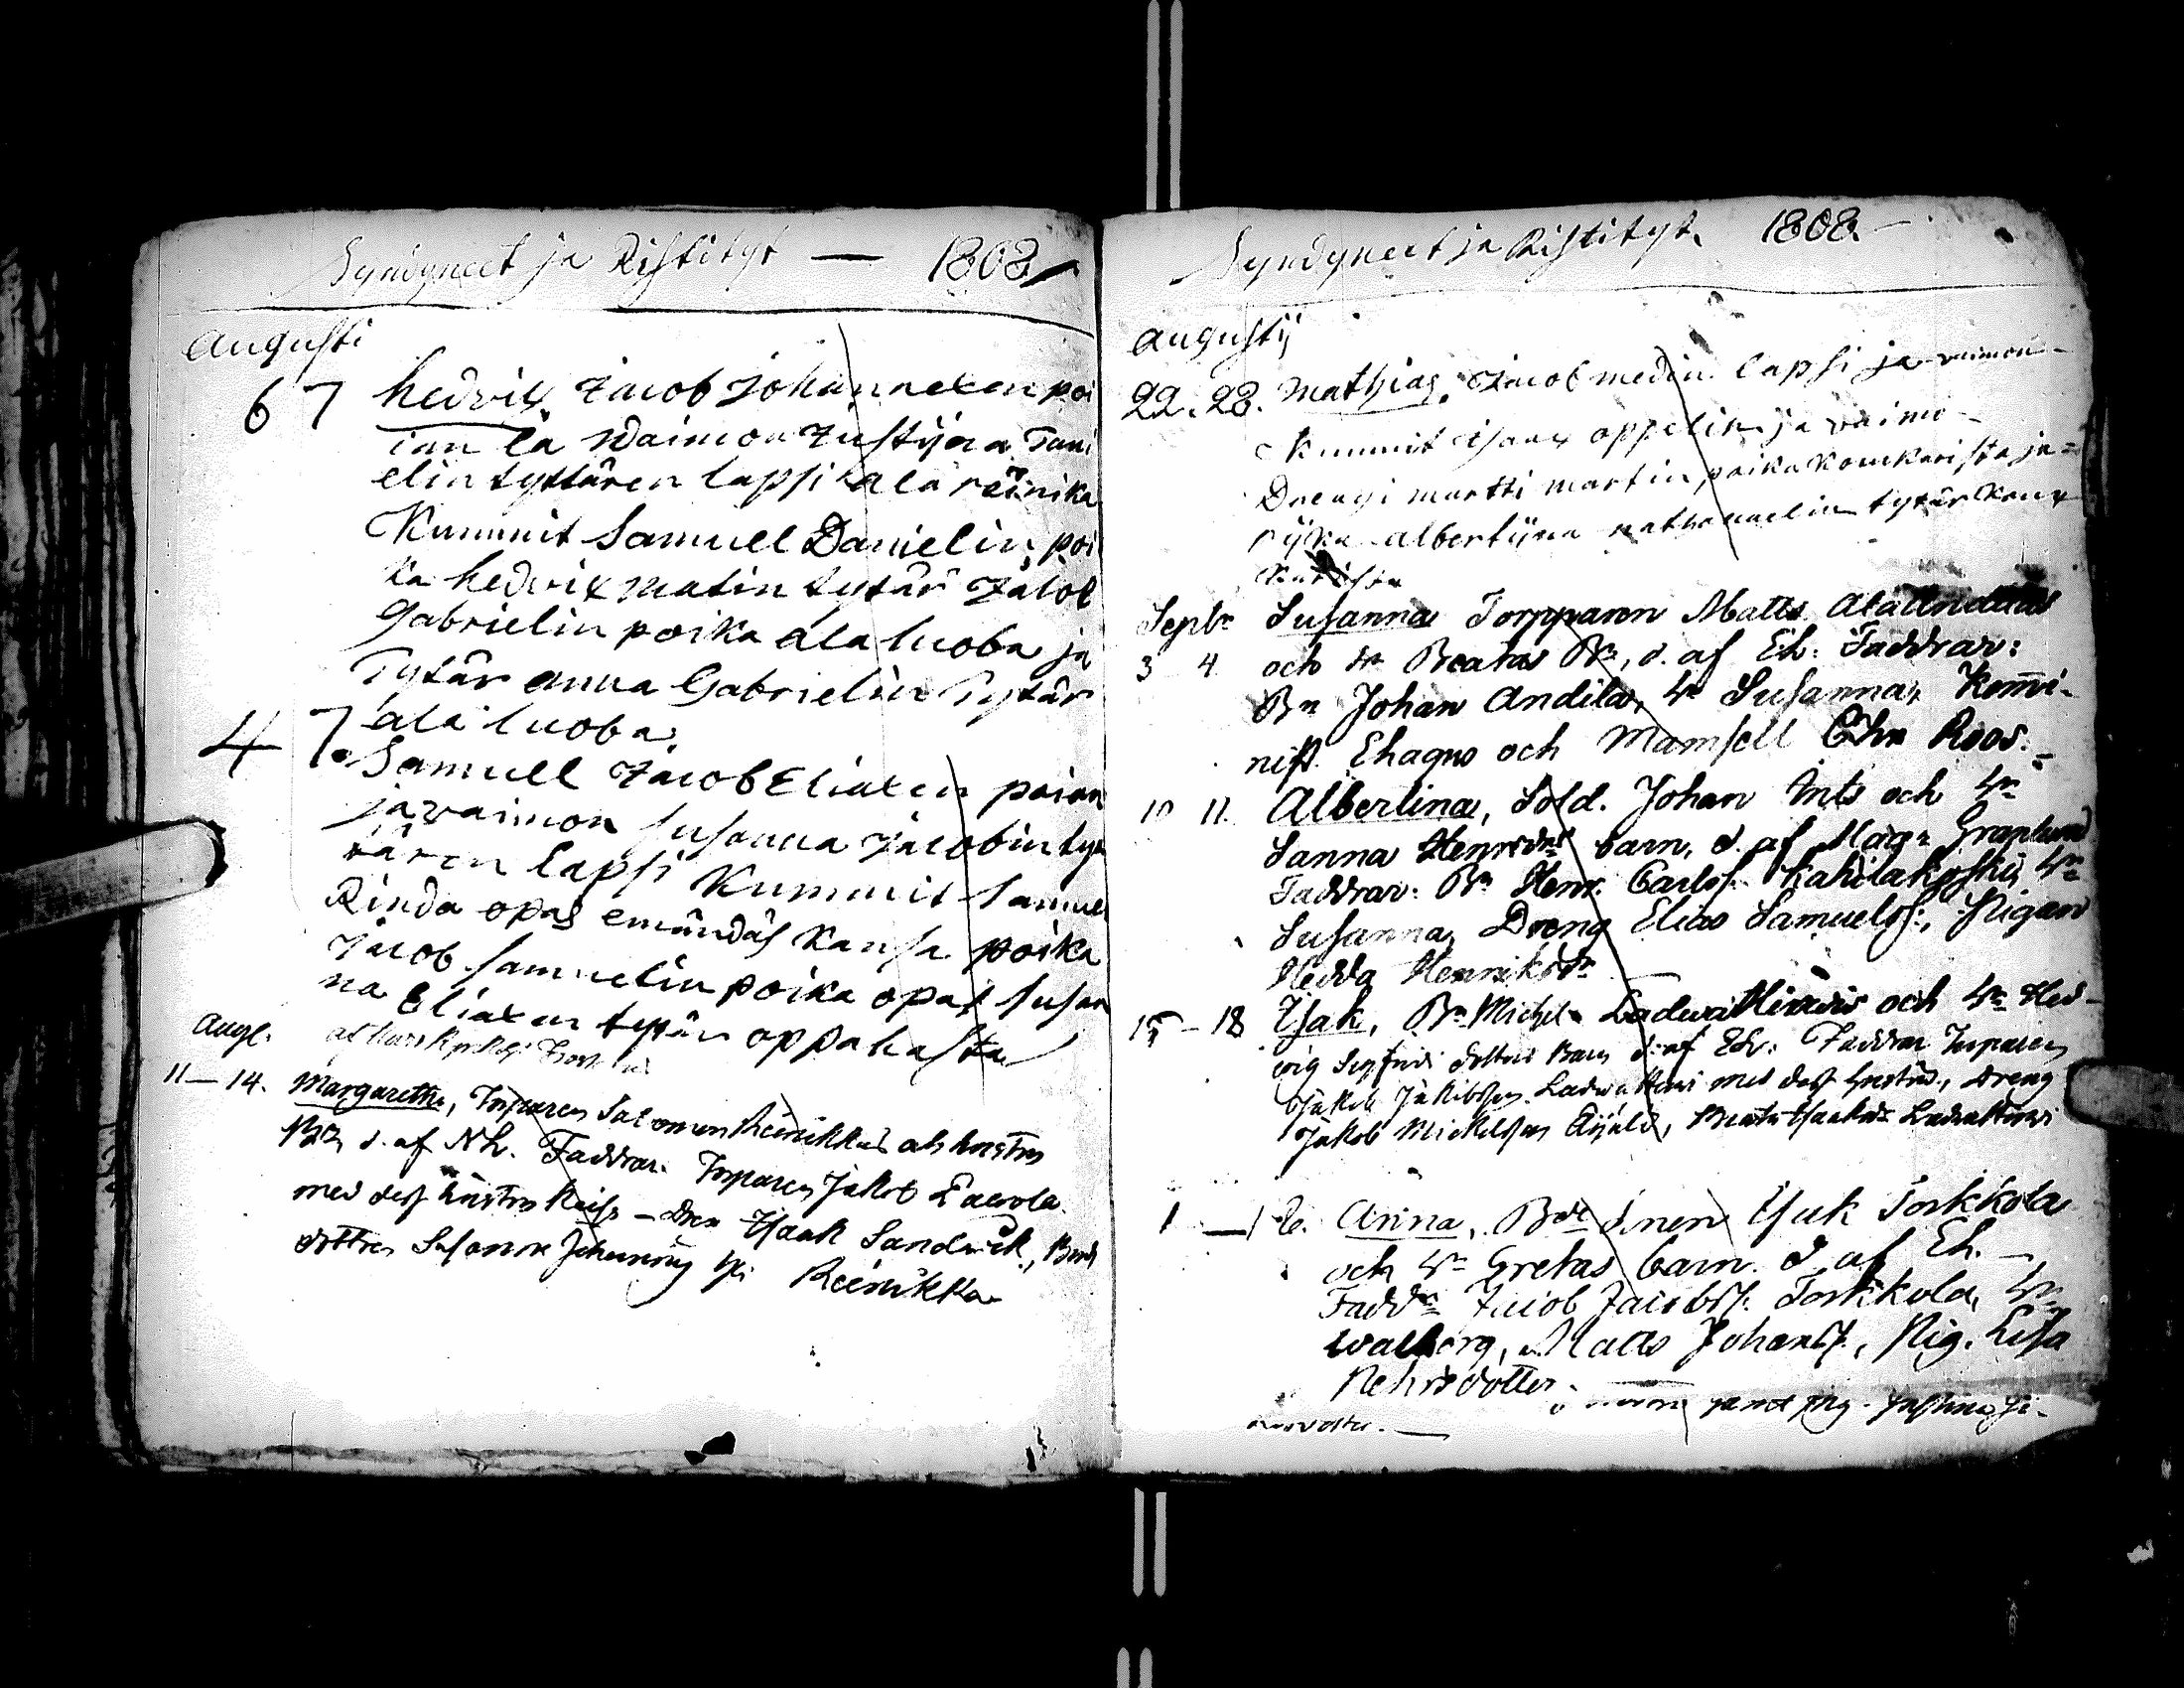 Syndyneet ja Ristityt — 1808
Augusti
6 7 hedvix Jacob Johannexen poi
ian ja Waimon Justijna Tani
elin tyttären lapsi ala reinika
Kummit Samuell Danielin poi
ka hedvix matin tytär Jacob
Gabrielin poika ala luoba ja
Tytär anna Gabrielin Tytär
ala luoba.
4 7. Samuell Jacob Eliaxen poian
ja vaimon susanna Jacobin tyt
tären lapsi Kummit Samuel
Rinda opas emändäs kansa poika
Jacob samuelin poika opas susan
na Eliaxen tytär oppahasta
Augt.
11—14. Margaretha, Torparen Salomon Reinikkas ock hustrus
Br, d. af NL. Faddrar. Torparen Jakob Laurola
med dess hustru Kaisa — Dr Isaak Sandvik, Bond
dottren Susanna hos Reinikka
Syndyneet ja Ristityt. 1808. —
Augustij
22. 23. Mathias. Jacob medin lapsi ja vaimon
Kummit isaax oppelin ja vaimo
Drengi martti martin poika konkarista ja
pijka albertijna nathanaelin tytär kon
karista
Septr Susanna Torpparen Matts Alaandilas
3 4 och Hu Beatas Br, d. af Eh: Faddrar:
Bn Johan Andila, Hu Susanna, Komi-
nist. Ehagus och Mamsell Chr Roos.
10 11. Albertina, Sold. Johan Ints och Hu
Sanna Henrdrs barn, d. af Mag. Graplund
Faddrar: Bn Henr. Carls. Kahilakoski, Hu
Susanna, Dreng Elias Samuels., Pigan
Hedda Henriksdr
15 — 18 Isak, Bn Michel Ladwa Hirwis och Hu Hed-
vig Sigfrids dotters Barn d. af Eh: Faddrar Torparen
Jakob Jakobsson Ladwa Hirwi med dess hustru, Dreng
Jakob Mickelsson Äijälä, Beata Isaksdr Ladwa Hirwi
1 — 2. Anna, Bde sonen Isak Torkkola
och Hu Gretas barn. d. af Eh. —
Faddr Jacob Jacobss. Torkkola, Hu
Walborg, Matts Johanss., Pig. Lisa
Pehrsdotter.
samt Pig. Justina